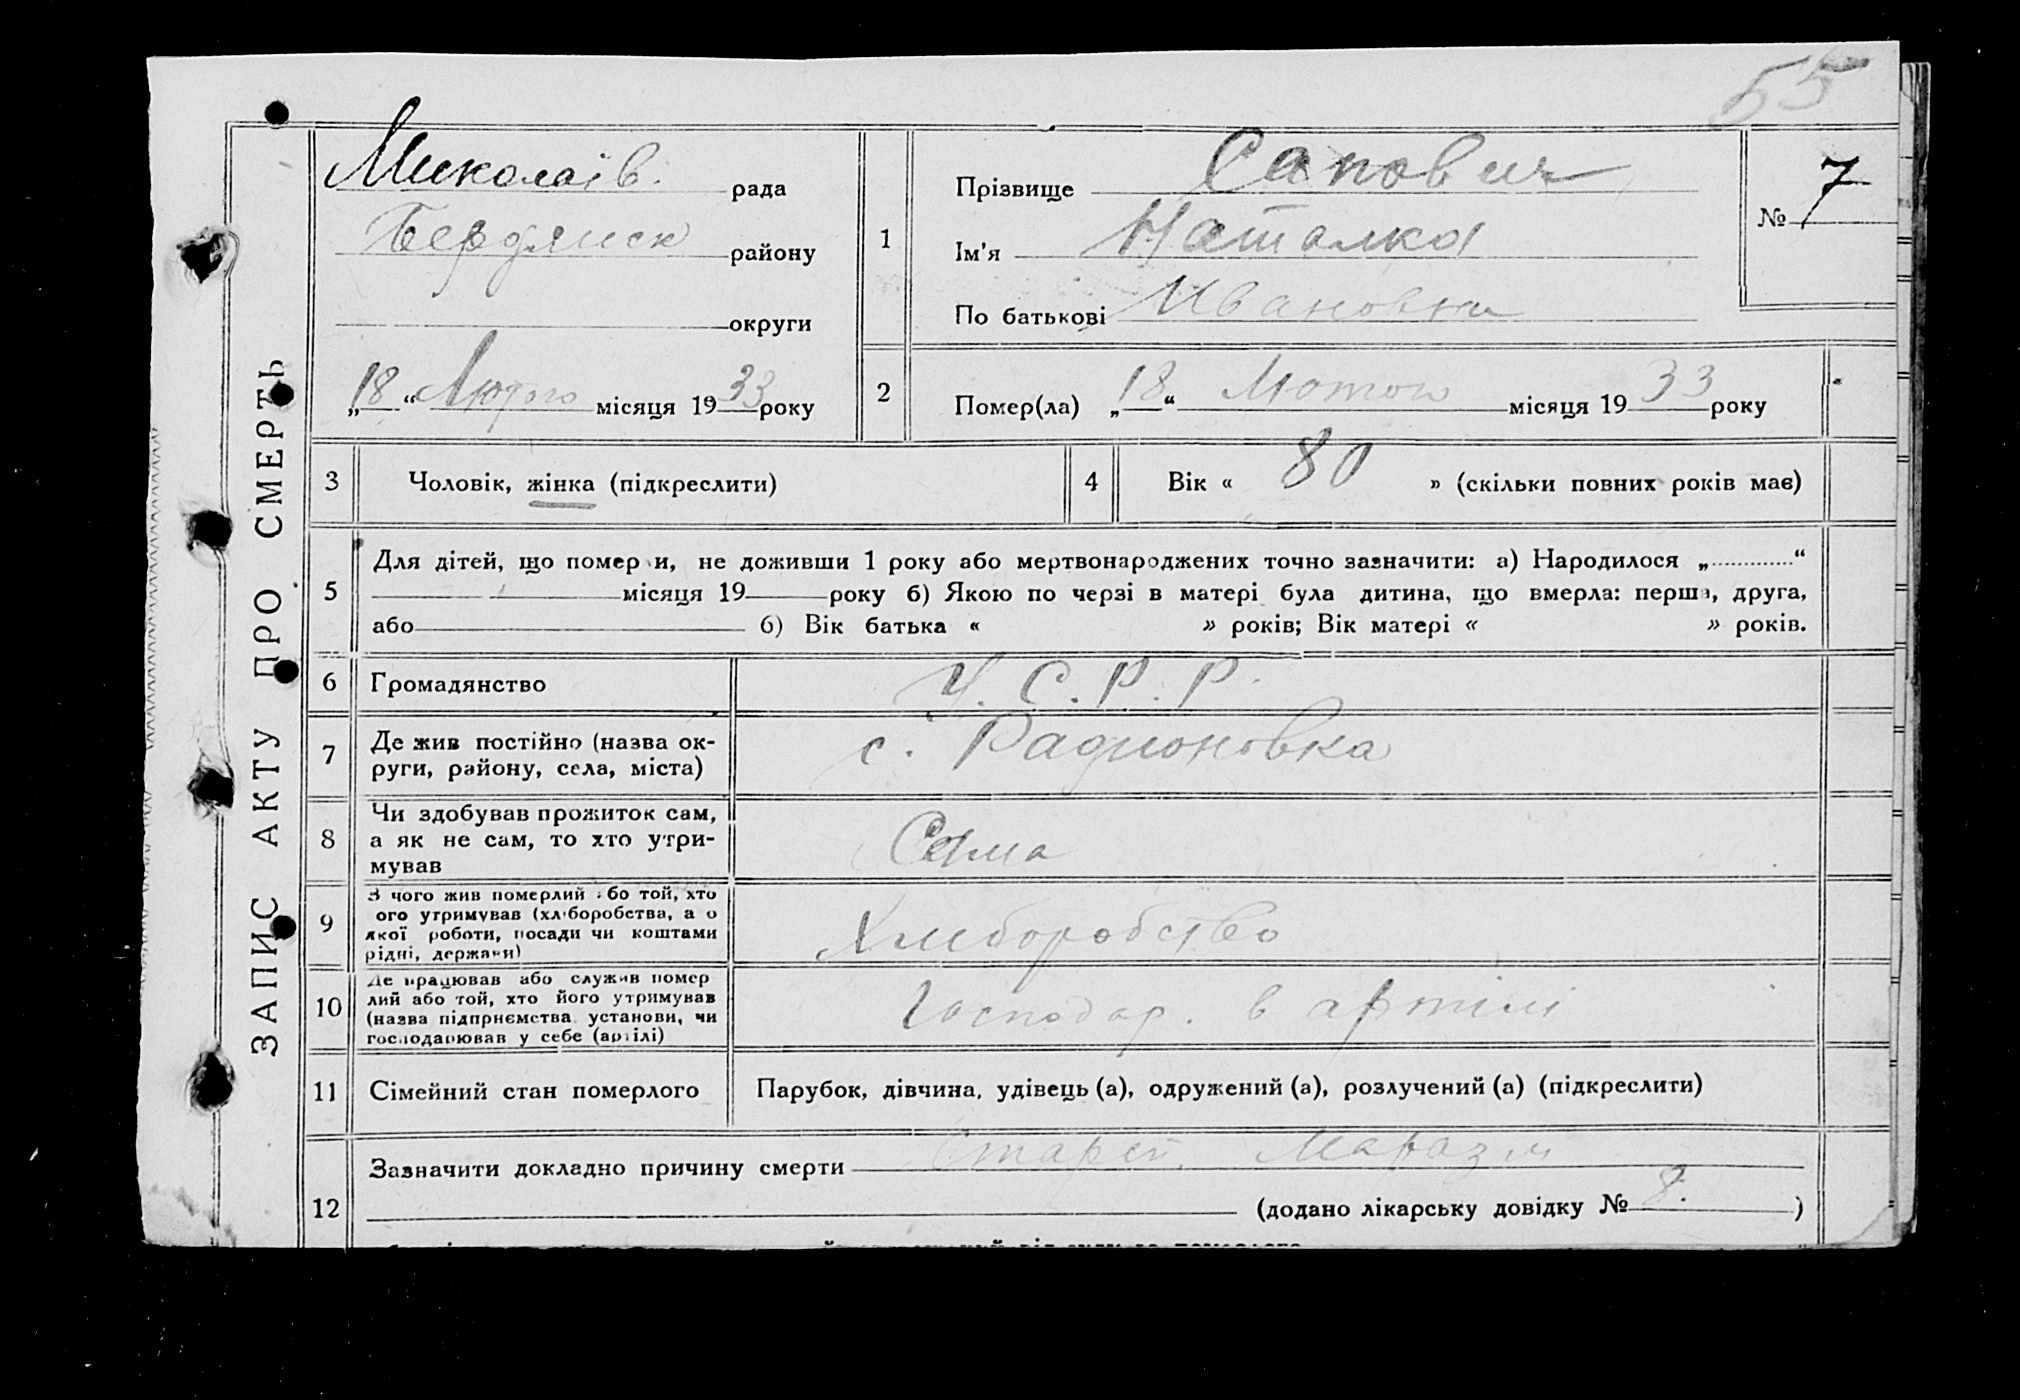 55
ЗАПИС АКТУ ПРО СМЕРТЬ
Миколаїв. рада
Бердянск району
округи
„18“ Лютого місяця 1933 року
1
Прізвище Сапович
Ім'я Наталка
По батькові Ивановна
№ 7
2
Помер(ла) „18“ Лютого місяця 1933 року
3
Чоловік, жінка (підкреслити)
4
Вік « 80 » (скільки повних років має)
5
Для дітей, що помер и, не доживши 1 року або мертвонароджених точно зазначити: а) Народилося „ “
місяця 19 року б) Якою по черзі в матері була дитина, що вмерла: перша, друга,
або б) Вік батька « » років; Вік матері « » років.
6
Громадянство
У. С. Р. Р.
7
Де жив постійно (назва ок-
руги, району, села, міста)
с. Радионовка
8
Чи здобував прожиток сам,
а як не сам, то хто утри-
мував
Сама
9
З чого жив померлий або той, хто
ого утримував (хліборобства, а о
якої роботи, посади чи коштами
рідні, держави)
Хлиборобство
10
Де працював або служив помер
лий або той, хто його утримував
(назва підприємства установи, чи
господарював у себе (артілі)
Господар. в артілі
11
Сімейний стан померлого
Парубок, дівчина, удівець (а), одружений (а), розлучений (а) (підкреслити)
12
Зазначити докладно причину смерти Старей. Маразм
(додано лікарську довідку № 8. )